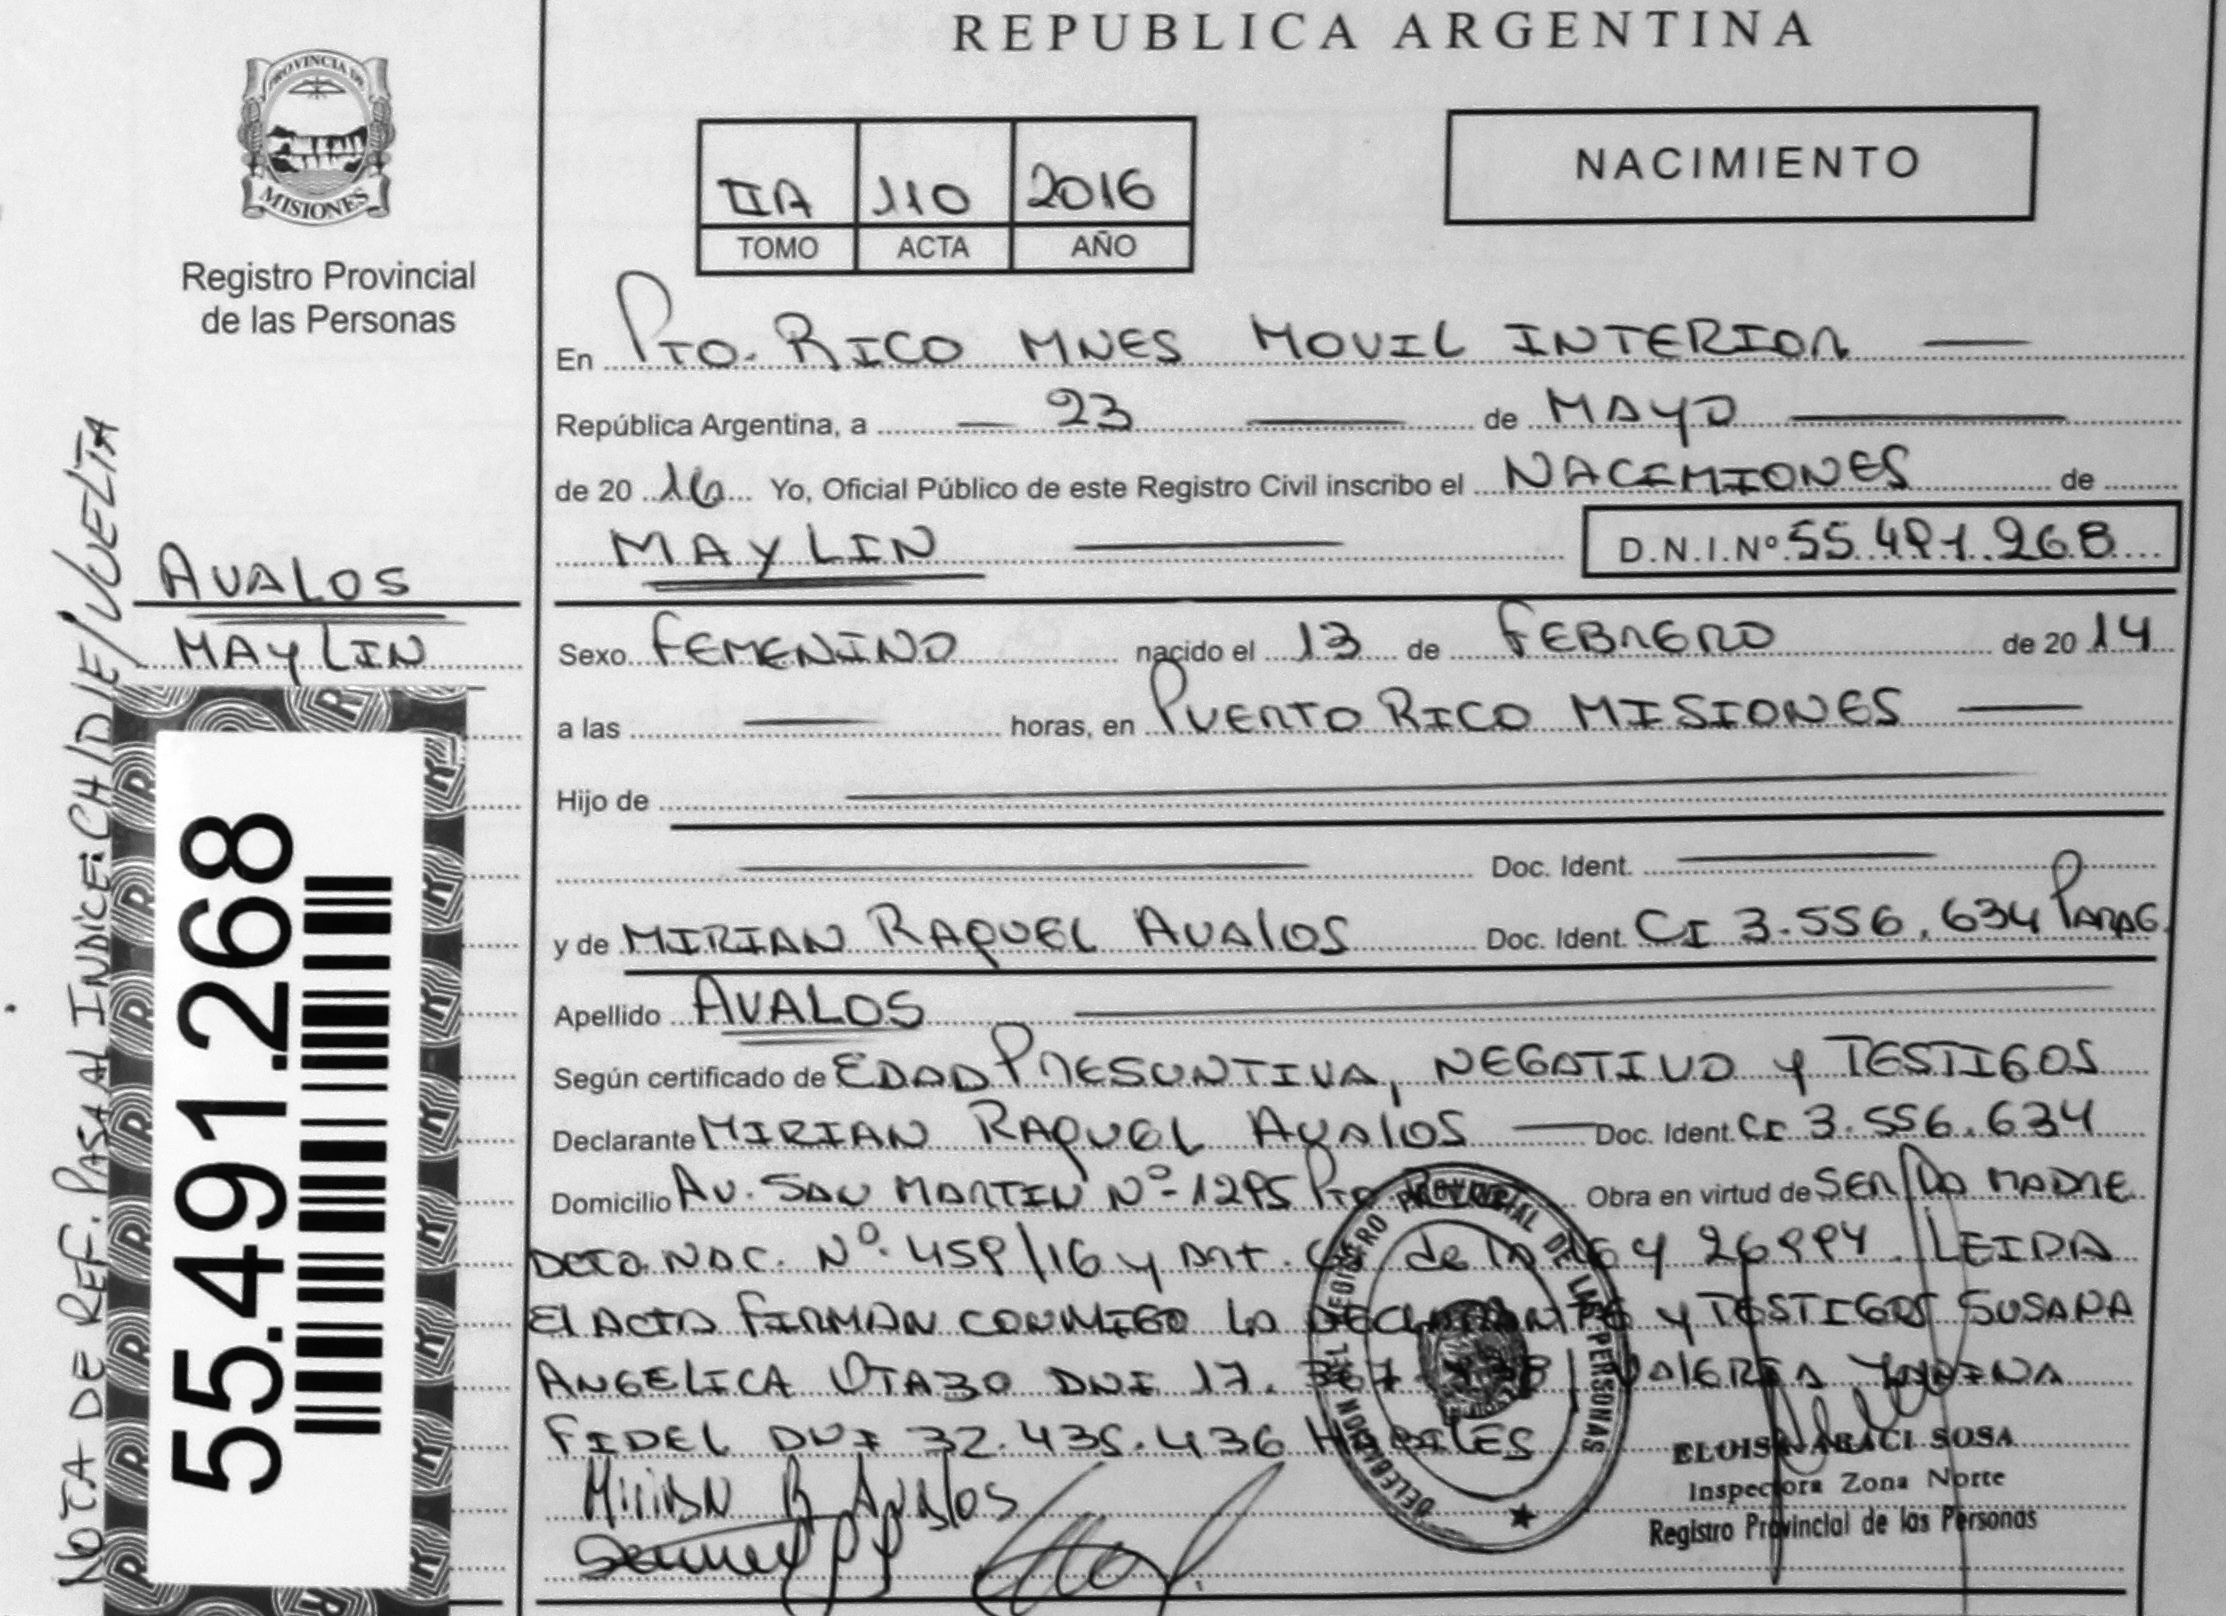 REPUBLICA ARGENTINA
PROVINCIA DE
MISIONES
Registro Provincial
de las Personas
NACIMIENTO
IIA 110 2016
TOMO ACTA AÑO
En Pto. Rico Mnes Movil Interior
República Argentina, a 23 de Mayo
de 2016 Yo, Oficial Público de este Registro Civil inscribo el de
Maylin D.N.I. Nº 55.491.268
AVALOS
MAYLIN
Sexo Femenino nacido el 13 de Febrero de 2014
a las horas, en Puerto Rico Misiones
Hijo de
Doc. Ident.
y de Mirian Raquel Avalos Doc. Ident. CI 3.556.634 Parag.
Apellido AVALOS
Según certificado de Edad Presuntiva, Negativo y Testigos
Declarante Mirian Raquel Avalos Doc. Ident. CI 3.556.634
Domicilio Av. San Martin Nº 1295 Pto. Obra en virtud de ser la madre
Dcto. Nac. Nº 459/16 y Art. de la Ley 26994. Leida
el acta firman conmigo la declarante y testigos Susana
Angelica Otazo DNI 17. Valeria
Fidel DNI 32.435.436 Habiles
Mirian R Avalos
REGISTRO PROVINCIAL DE LAS PERSONAS
DELEGACION
ELOISA ARACI SOSA
Inspectora Zona Norte
Registro Provincial de las Personas
NOTA DE REF. PASA AL INDICE: CH/DIE/VUELTA
55.491.268